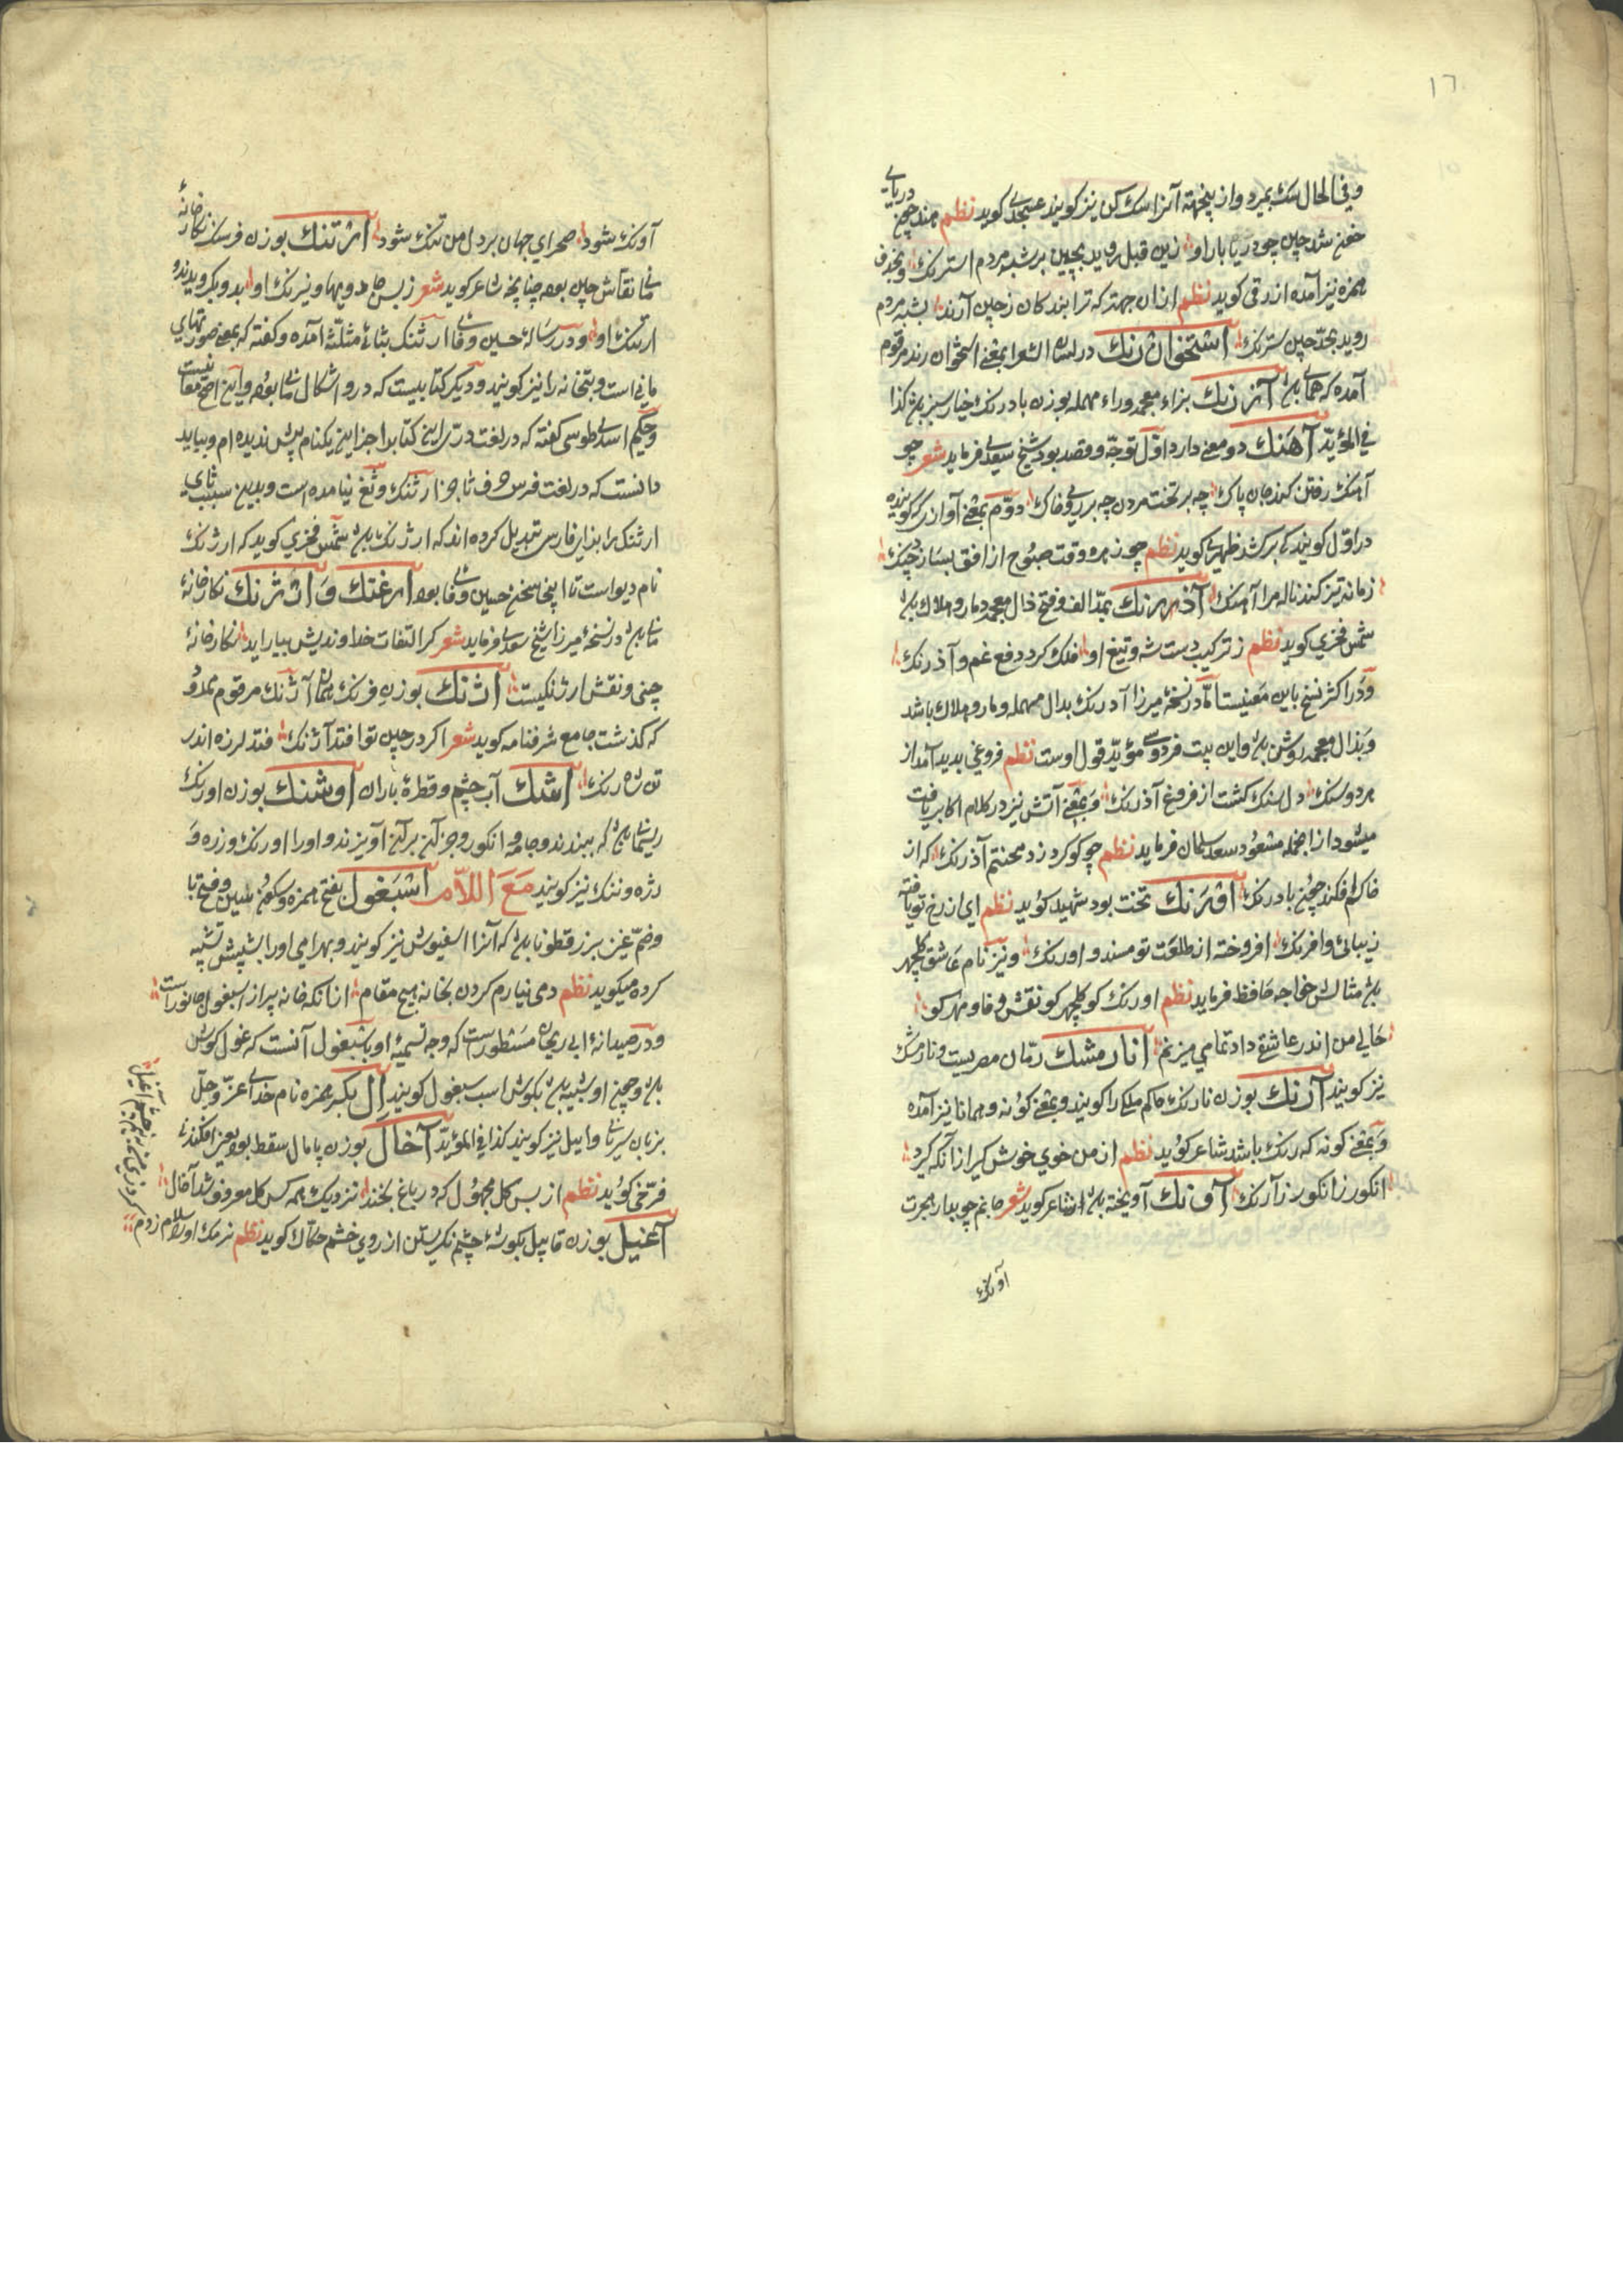 ١٦
وفی الحال سک بمیرد واز ینجهته آنرا سک کن نیز کویند عسجدی کوید نظم هند چون دریای
خون شد چین چو دریا بار او زین قبل روید بچین بر شبه مردم استرنک وبحذف
همزه نیز آمده ازرقی کوید نظم ازان جهته که ترا بندکان ز چین آرند بشبه مردم
روید بحد چین سترنک استخوان رنک در لسان الشعرا بمعنی استخوان رند مرقوم
آمده که همای بلغ آزرنک بزاء معجمه وراء مهمله بوزن بادرنک خیار سبز بلغ کذا
فی المؤید آهنک دو معنی دارد اول توجه وقصد بود شیخ سعدی فرماید شعر چو
آهنک رفتن کند جان پاک چه بر تخت مردن چه بر روی خاک دوم بمعنی آوازی که کوینده
در اول کویندکی برکشد ظهیر کوید نظم چو زهره وقت صبوح از افق بسازد چنک
زمانه تیز کند ناله مرا آهنک آذرنک بمد الف وفتح ذال معجمه دمار وهلاک بلغ
شمس فخری کوید نظم ز ترکیب دست شه وتیغ او فلک کرد دفع غم وآذرنک
ودر اکثر نسخ باین معنیست اما در نسخه میرزا آدرنک بدال مهمله ومار وهلاک باشد
وبذال معجمه روشن بلغ واین بیت فردوسی مؤید قول اوست نظم فروغی پدید آمد از
هر دو سنک دل سنک کشت از فروغ آذرنک وبمعنی آتش نیز در کلام اکابر یافت
میشود از انجمله مسعود سعد سلمان فرماید نظم چو کوکرد زد محنتم آذرنک که از
خاکم افکند چون بادرنک اورنک تخت بود شهید کوید نظم ای از رخ تو یافته
زیبائی وافرنک افروخته از طلعت تو مسند و اورنک ونیز نام عاشق کلچهر
بلغ مثالش خواجه حافظ فرماید نظم اورنک کو کلچهر کو نقش وفا ومهر کو
حالی من اندر عاشقی داد تمامی میزنم انار مشک رمان مصریست ونار مشک
نیز کویند آرنک بوزن نارنک حاکم ملکی را کویند وبمعنی کونه وهمانا نیز آمده
وبمعنی کونه که رنک باشد شاعر کوید نظم از من خوی خوش کیر از آنکه کیرد
انکور ز انکور رنک آرنک آونک آویخته بلغ شاعر کوید شعر جانم چو بدار هجرت
آونک
آونک شود صحرای جهان بر دل من تنک شود ارتنک بوزن فرسنک نکارخانه
مانی نقاش چین بوده چنانچه شاعر کوید شعر ز بس جادویها ونیرنک او بدو بکرویدند و
ارتنک او ودر رساله حسین وفائی ارثنک بثاء مثلثه آمده وکفته که بمعنی صورتهای
مانی است وبتخانه را نیز کویند ودیکر کتابیست که درو اشکال مانی بوده واین اصح معانیست
وحکیم اسدی طوسی کفته که در لغت دری این کتاب را جز این یکنام پیش ندیده ام وبباید
دانست که در لغت فرس حرف ثا جز ارثنک وثغ نیامده است وبدین سبب ثای
ارثنک را بزای فارسی تبدیل کرده اند که ارژنک بلغ شمس فخری کوید که ارژنک
نام دیو است تا اینجا سخن حسین وفائی بود ارغنک و ارژنک نکارخانه
مانی بلغ در نسخه میرزا شیخ سعدی فرماید شعر کر التفات خداوندیش بیاراید نکارخانه
چینی ونقش ارژنکیست ارژنک بوزن فرنک همان آژنک مرقوم بمد
که کذشت جامع شرفنامه کوید شعر اکر در چین تو افتد آژنک فتد لرزه اندر
تن شاه زنک اشک آب چشم وقطره باران اوشنک بوزن اورنک
ریسمانی بلغ که ببندند وجامه وانکور وجز آن بر آن آویزند واورا اورنک ورزه و
رژه وننک نیز کویند مع اللام اسبغول بفتح همزه وسکون سین وفتح با
وضم غین بزرقطونا بلغ که آنرا اسفیوش نیز کویند وبهرامی اورا بشپش تشبیه
کرده میکوید نظم دمی نیارم کردن بخانه هیچ مقام از آنکه خانه پر از اسبغول جانور است
ودر صیدانه ابی ریحان مسطور است که وجه تسمیه او باسبغول آنست که غول کوش
بلغ وچون او شبیه بلغ بکوش اسب اسبغول کویند ال بکسر همزه نام خدای عز وجل
بزبان سریانی وایل نیز کویند کذا فی المؤید آخال بوزن پامال سقط بود یعنی افکندنی
فرخی کوید نظم از بس کل مجهول که در باغ بخندند نزدیک همه کس کل معروف شد آخال
آغیل بوزن قابیل بکوشه چشم نکریستن از روی خشم حکاک کوید نظم نرمک اورا سلام زدم